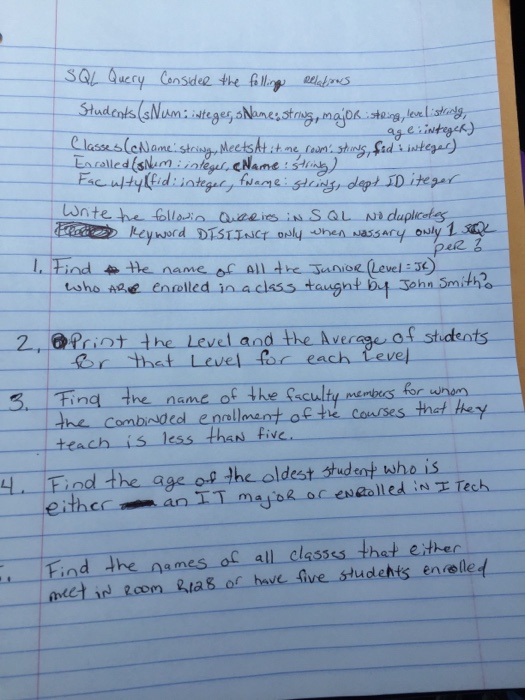 SQL Query Consider the folling relations
Students(sNum: integer, sName: string, major: string, level: string,
age: integer)
Classes(cName: string, MeetsAt: time room: string, fid: integer)
Enrolled(sNum: integer, cName: string)
Faculty(fid: integer, fName: string, dept ID iteger
Write the followin Queries in SQL No duplicates
Keyword DISTINCT only when nassary only 1 SQL
per ?
1. Find the name of All the Junior (Level = JR)
who ARe enrolled in a class taught by John Smith?
2. Print the Level and the Average of students
for that Level for each Level
3. Find the name of the faculty members for whom
the combinded enrollment of the courses that they
teach is less than five.
4. Find the age of the oldest student who is
either an IT major or enrolled in I Tech
Find the names of all classes that either
meet in Room R128 or have five students enrolled